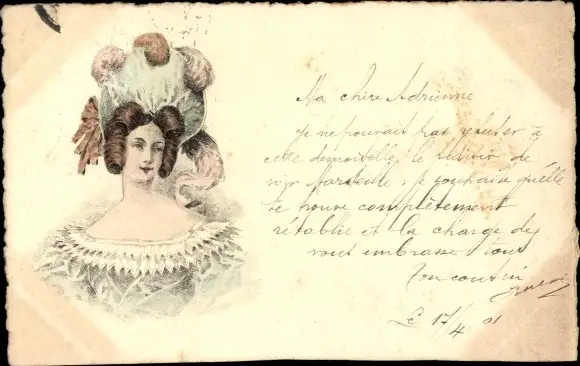 Ma chère Adrienne
Je ne pouvait pas à
cette demoiselle le de
voir Marseille, je souhaite qu'elle
te trouve complètement
rétablie et la charge de
vous embrasse tous
Ton cousin
Le 17/4 01